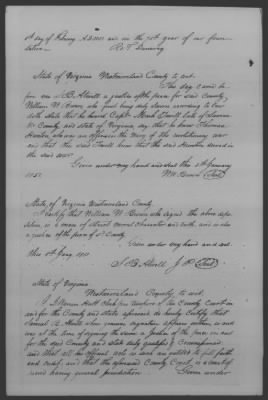 day of February A.D. 1851 and in the 75th year of our
State of Virginia Westmoreland County to wit.
This day came be-
fore me S. B. Atwill a justice of the peace for said County
William W. Brown who first being duly sworn according to law
doth state that he heard Capt.
County and state of Virginia, say that he knew Thomas
who was an officer in the Navy of the revolutionary war
and that the said told him that the said served in
the said war.
Given under my hand and seal this 8th January
1851. Wm Brown Seal
State of Virginia Westmoreland County
I certify that William W. Brown who signed the above depo-
sition, is a man of strict moral character and truth and is also
a justice of the peace in sd County.
Given under my hand and seal
this 8th Jany. 1851
S B Atwill J. P. Seal
State of Virginia
Westmoreland County to wit,
I Warren Hutt Clerk of the County Court in
and for the County and state aforesaid do hereby Certify that
Samuel B. Atwill whose genuine signature appears within, is and
was at the time of signing the same a justice of the peace in and
for the sd County and state duly qualified & Commissioned
and that all his official acts as such are entitled to full faith
and credit, and that the aforesaid County Court, is a court of
record having general jurisdiction. Given under